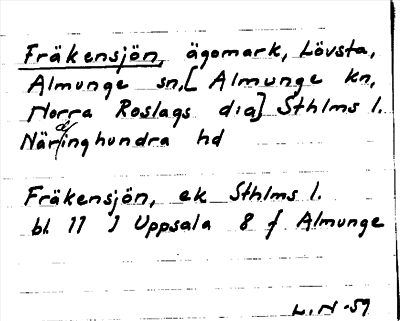 Fräkensjön, ägomark, Lövsta,
Almunge sn, [Almunge kn,
Norra Roslags dia] Sthlms l.
Närdinghundra hd
Fräkensjön, ek Sthlms l.
bl 11 J Uppsala 8 f Almunge
L.N -59